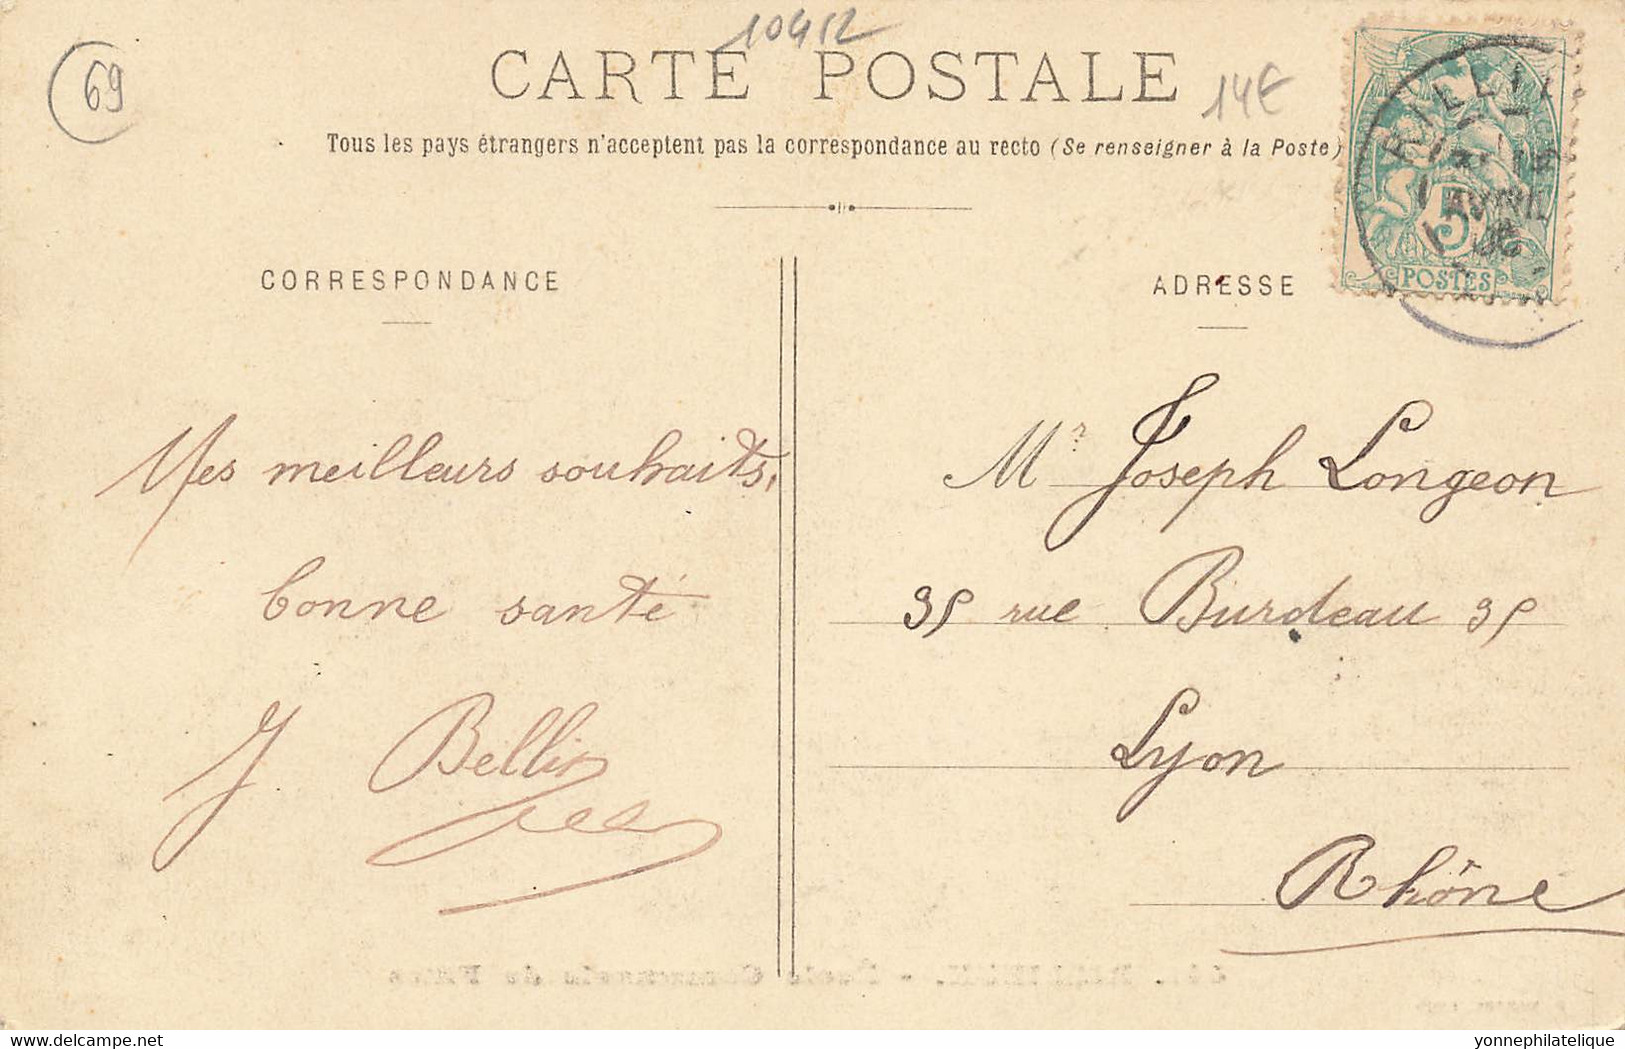 10412
69
CARTE POSTALE
14€
Tous les pays étrangers n'acceptent pas la correspondance au recto (Se renseigner à la Poste)
AVRIL
5
POSTES
CORRESPONDANCE
ADRESSE
Mes meilleurs souhaits,
bonne santé
J Bellin
Mr Joseph Longeon
35 rue Burdeau 35
Lyon
Rhône
yonnephilatelique